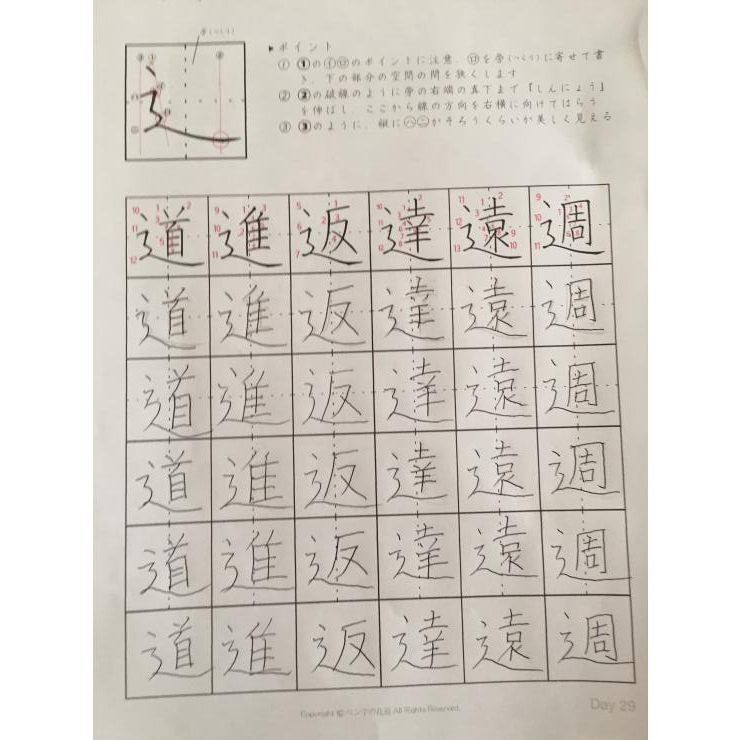 旁(つくり)
▶ポイント
① ❶の㋑㋺のポイントに注意。㋺を旁(つくり)に寄せて書
き、下の部分の空間の間を狭くします
② ❷の破線のように旁の右端の真下まで『しんにょう』
を伸ばし、ここから線の方向を右横に向けてはらう
③ ❸のように、縦に㋩㋥がそろうくらいが美しく見える
道 進 返 達 遠 週
道 進 返 達 遠 週
道 進 返 達 遠 週
道 進 返 達 遠 週
道 進 返 達 遠 週
道 進 返 達 遠 週
All Rights Reserved.
Day 29